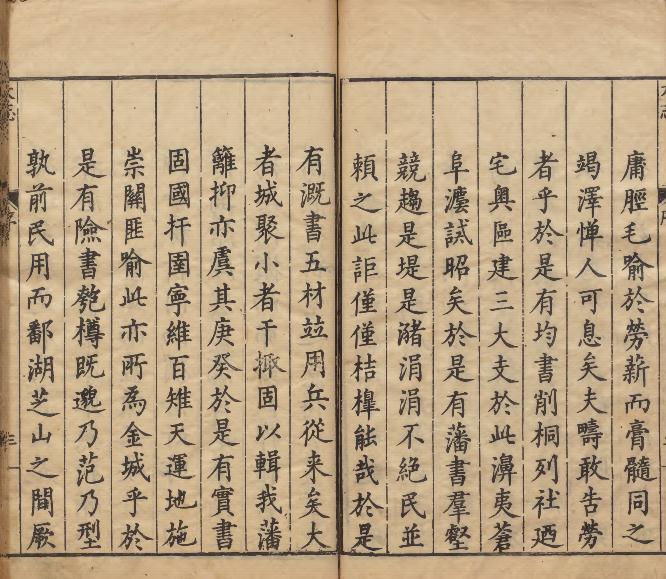 庸脛毛喻於勞薪而膏髓同之
竭澤憚人可息矣夫疇敢告勞
者乎於是有均書削桐列社迺
宅奧區建三大支於此濞夷蒼
阜試昭矣於是有藩書羣壑
競趨是堤是瀦涓涓不絕民並
賴之此詎僅僅桔槹能哉於是
有溉書五材竝用兵從来矣大
者城聚小者干掫固以輯我藩
籬抑亦虞其庚癸於是有實書
固國扞圉寧維百雉天運地施
崇關匪喻此亦所為金城乎於
是有險書匏樽既邈乃范乃型
孰前民用而鄱湖芝山之間厥
三